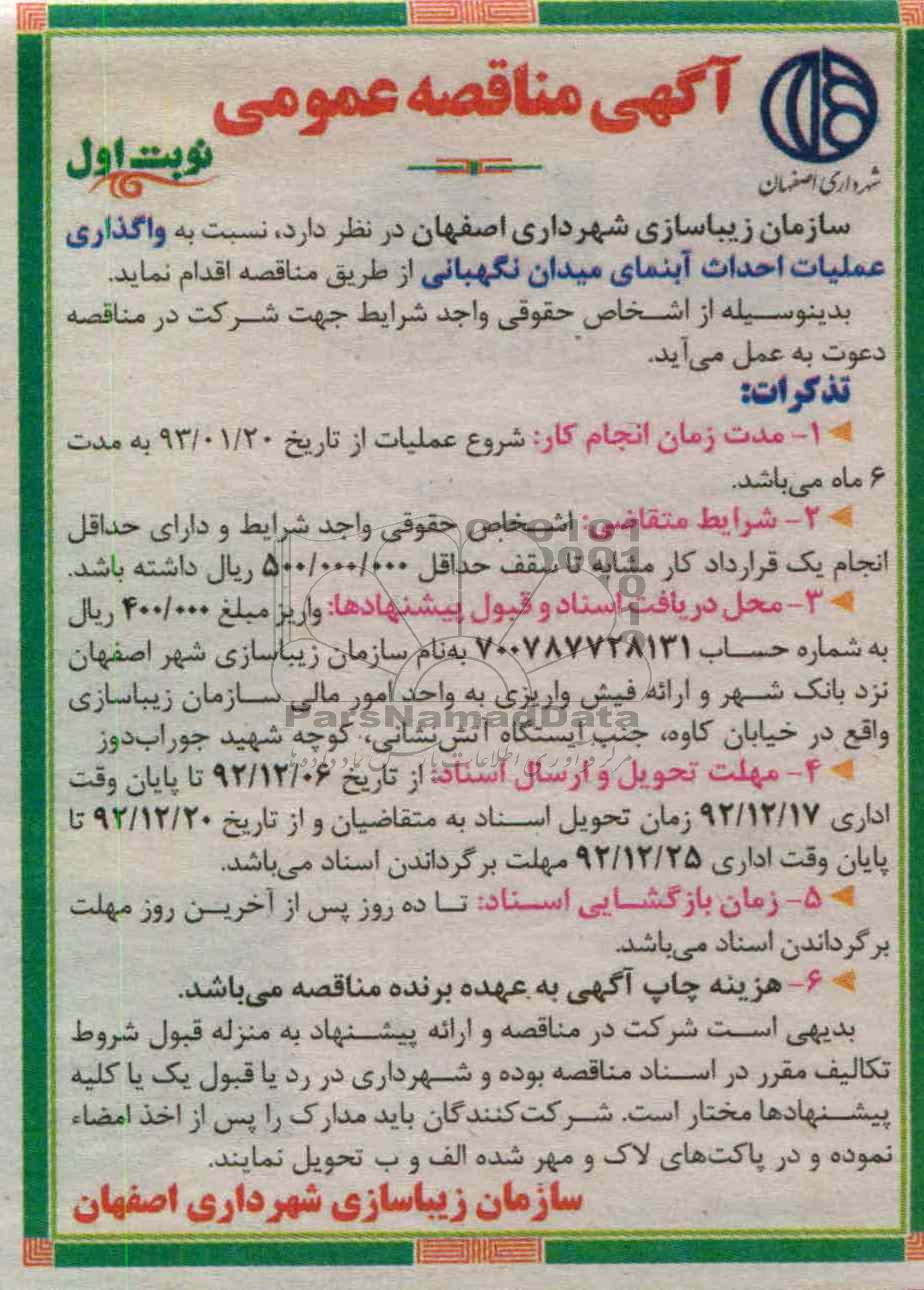 آگهی مناقصه عمومی
شهرداری اصفهان
نوبت اول
سازمان زیباسازی شهرداری اصفهان در نظر دارد، نسبت به واگذاری
عملیات احداث آبنمای میدان نگهبانی از طریق مناقصه اقدام نماید.
بدینوسیله از اشخاص حقوقی واجد شرایط جهت شرکت در مناقصه
دعوت به عمل می‌آید.
تذکرات:
۱- مدت زمان انجام کار: شروع عملیات از تاریخ ۹۳/۰۱/۲۰ به مدت
۶ ماه می‌باشد.
۲- شرایط متقاضی: اشخاص حقوقی واجد شرایط و دارای حداقل
انجام یک قرارداد کار مشابه تا سقف حداقل ۵۰۰/۰۰۰/۰۰۰ ریال داشته باشد.
۳- محل دریافت اسناد و قبول پیشنهادها: واریز مبلغ ۴۰۰/۰۰۰ ریال
به شماره حساب ۷۰۰۷۸۷۷۲۸۱۳۱ به‌نام سازمان زیباسازی شهر اصفهان
نزد بانک شهر و ارائه فیش واریزی به واحد امور مالی سازمان زیباسازی
ParsNamadData
واقع در خیابان کاوه، جنب ایستگاه آتش‌نشانی، کوچه شهید جوراب‌دوز
۴- مهلت تحویل و ارسال اسناد: از تاریخ ۹۲/۱۲/۰۶ تا پایان وقت
اداری ۹۲/۱۲/۱۷ زمان تحویل اسناد به متقاضیان و از تاریخ ۹۲/۱۲/۲۰ تا
پایان وقت اداری ۹۲/۱۲/۲۵ مهلت برگرداندن اسناد می‌باشد.
۵- زمان بازگشایی اسناد: تا ده روز پس از آخرین روز مهلت
برگرداندن اسناد می‌باشد.
۶- هزینه چاپ آگهی به عهده برنده مناقصه می‌باشد.
بدیهی است شرکت در مناقصه و ارائه پیشنهاد به منزله قبول شروط
تکالیف مقرر در اسناد مناقصه بوده و شهرداری در رد یا قبول یک یا کلیه
پیشنهادها مختار است. شرکت‌کنندگان باید مدارک را پس از اخذ امضاء
نموده و در پاکت‌های لاک و مهر شده الف و ب تحویل نمایند.
سازمان زیباسازی شهرداری اصفهان